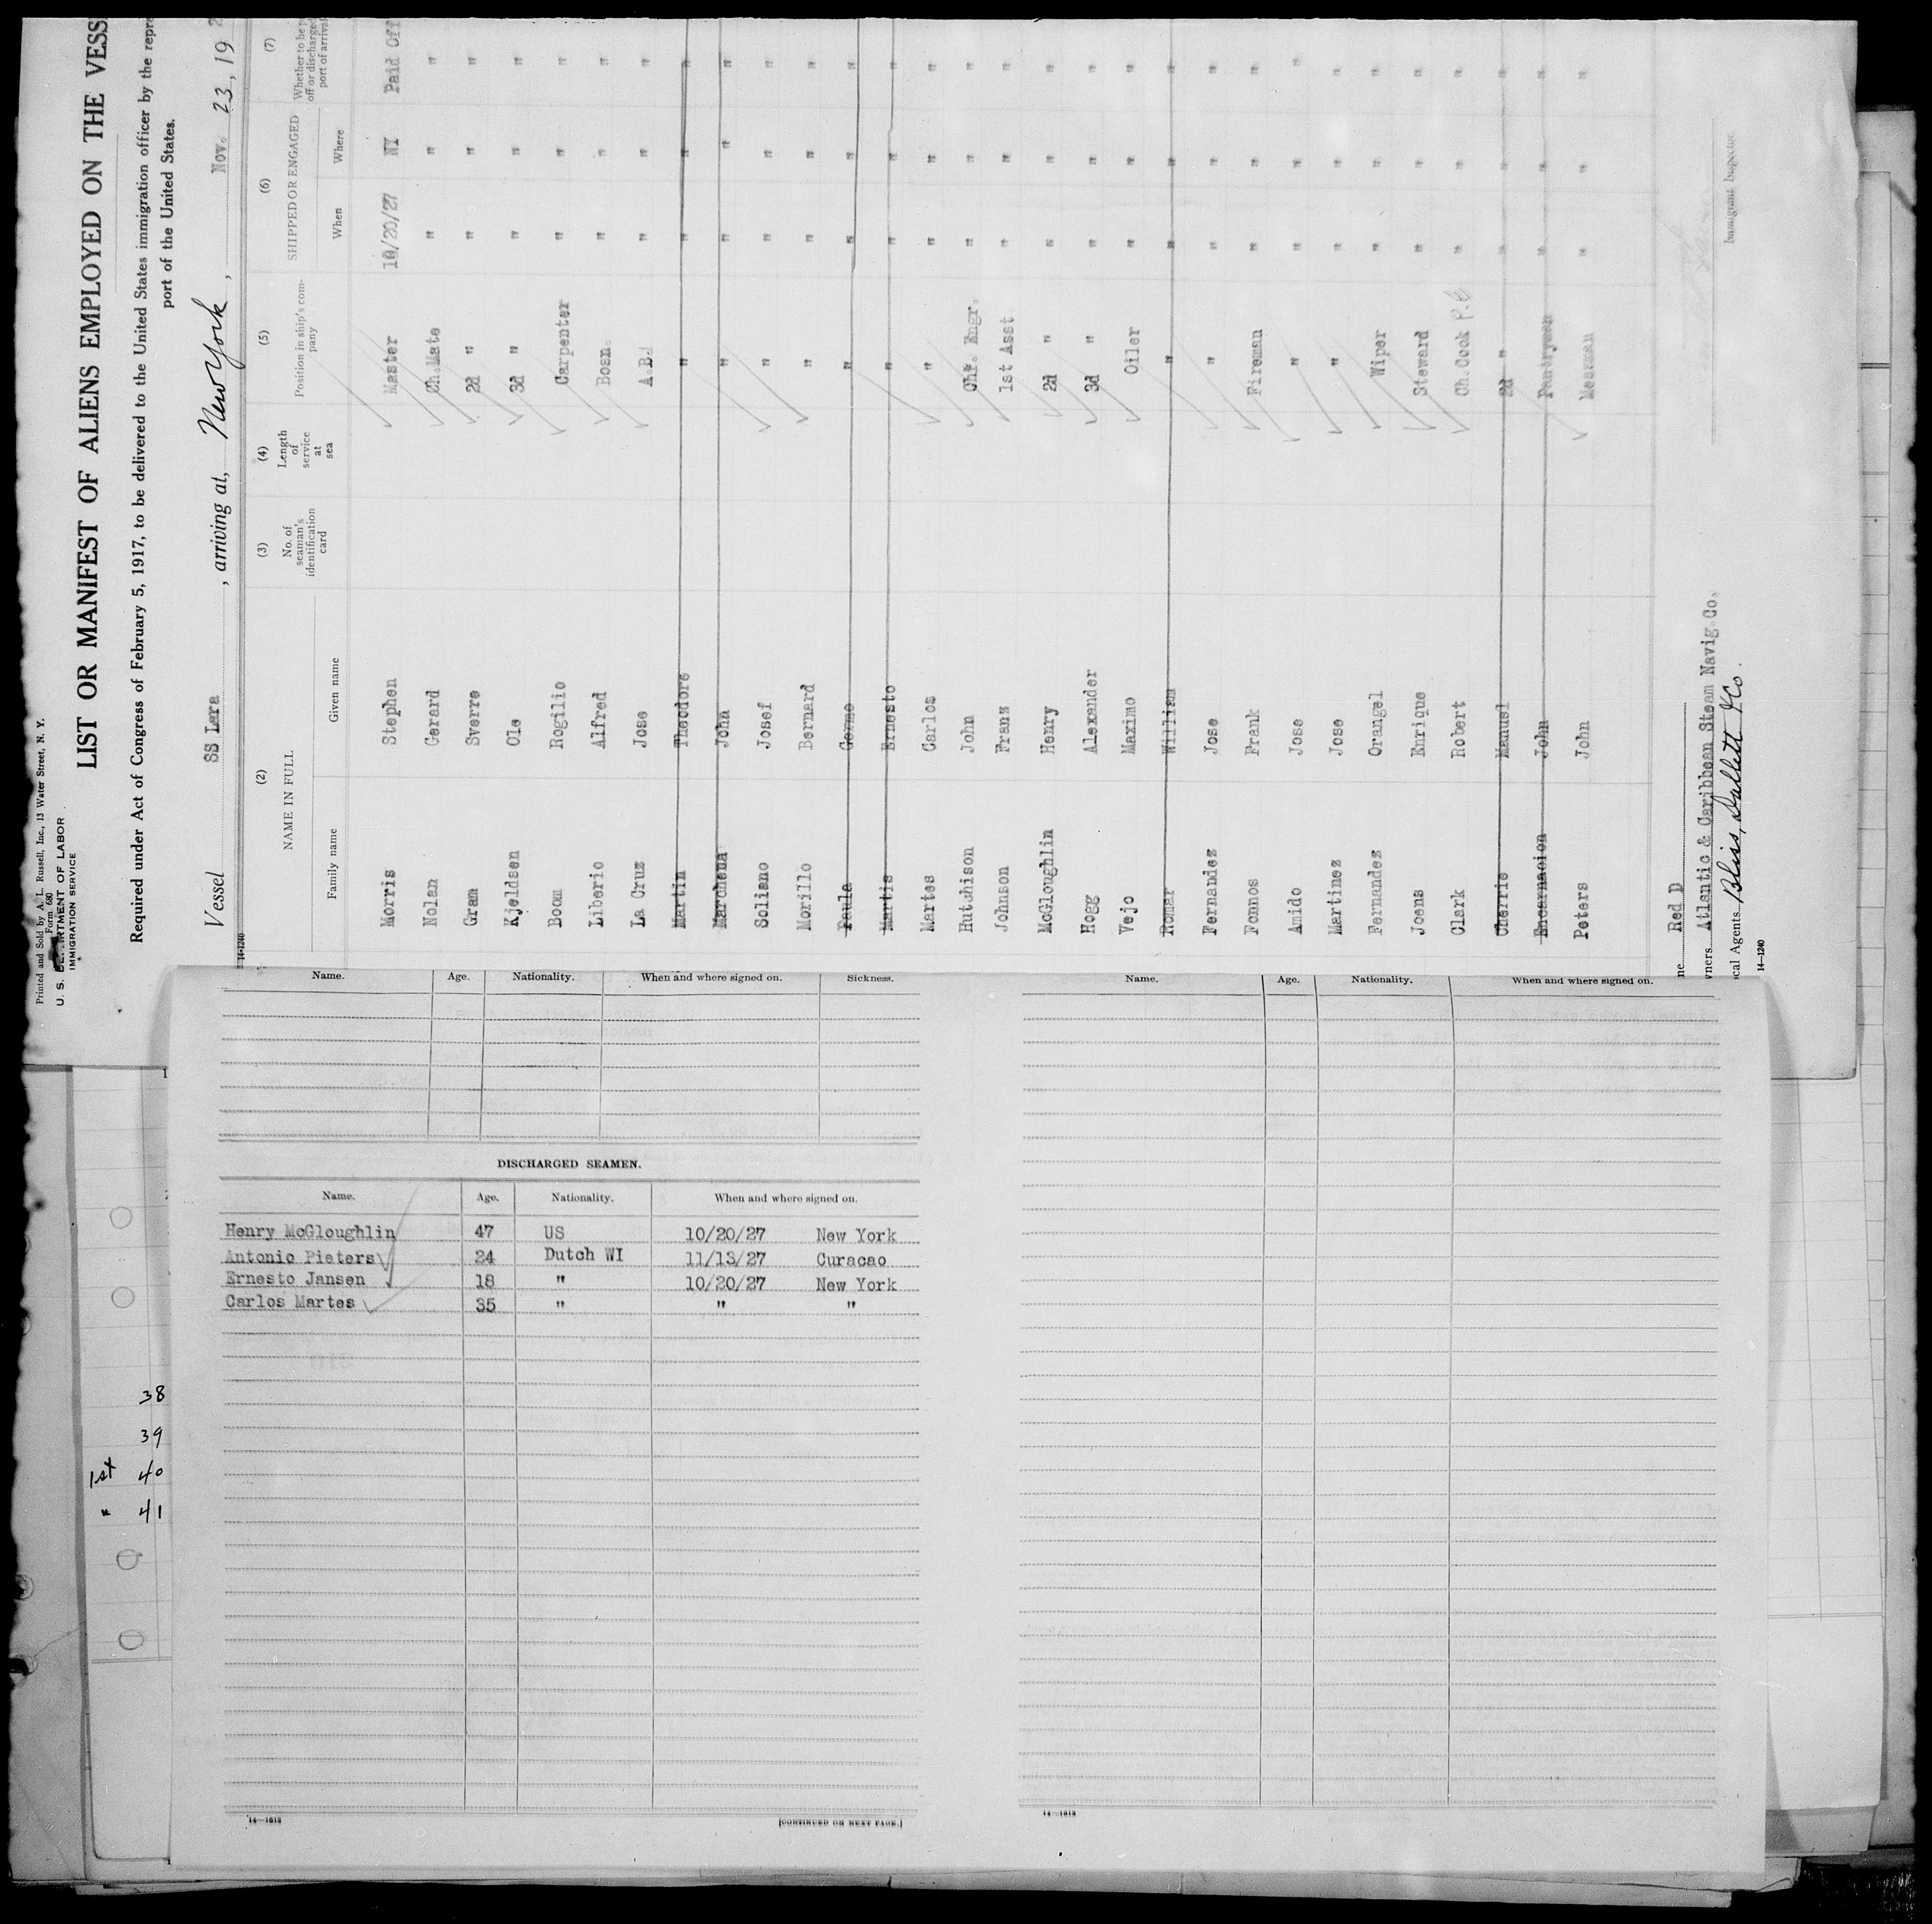 Printed and Sold by A. L. Russell, Inc., 13 Water Street, N. Y.
Form 680
U. S. DEPARTMENT OF LABOR
IMMIGRATION SERVICE
LIST OR MANIFEST OF ALIENS EMPLOYED ON THE VESS
Required under Act of Congress of February 5, 1917, to be delivered to the United States immigration officer by the repre
port of the United States.
Vessel SS Lara, arriving at, New York, Nov. 23, 19 2
14—1240
(2) (3) (4) (5) (6) (7)
NAME IN FULL No. of seaman's identification card Length of service at sea Position in ship's company SHIPPED OR ENGAGED Whether to be p off or discharged port of arrival
Family name Given name When Where
Morris Stephen Master 10/20/27 NY Paid Off
Nolan Gerard Ch.Mate " " "
Gram Sverre 2d " " " "
Kjeldsen Ole 3d " " " "
Boom Rogilio Carpenter " " "
Liberio Alfred Bosn. " " "
La Cruz Jose A.B. " " "
Martin Theodore " " " "
Marchena John " " " "
Soliano Josef " " " "
Morillo Bernard " " " "
Paula " " " "
Martis Ernesto " " " "
Martes Carlos " " " "
Hutchison John Chf. Engr. " " "
Johnson Franz 1st Asst " " "
McGloughlin Henry 2d " " " "
Hogg Alexander 3d " " " "
Vejo Maximo Oiler " " "
Romar William " " " "
Fernandez Jose " " " "
Fonnos Frank Fireman " " "
Amido Jose " " " "
Martinez Jose " " " "
Fernandez Orangel Wiper " " "
Joens Enrique Steward " " "
Clark Robert Ch.Cook " " "
Cherrie Manuel 2d " " " "
Encarnacion John Pantryman " " "
Peters John Messman " " "
ne Red D
wners Atlantic & Caribbean Steam Navig.Co.
cal Agents Bliss, Dallett & Co.
Immigrant Inspector.
14—1240
Name. Age. Nationality. When and where signed on. Sickness.
DISCHARGED SEAMEN.
Name. Age. Nationality. When and where signed on.
Henry McGloughlin 47 US 10/20/27 New York
Antonio Pieters 24 Dutch WI 11/13/27 Curacao
Ernesto Jansen 18 " 10/20/27 New York
Carlos Martes 35 " " "
14—1613
[CONTINUED ON NEXT PAGE.]
Name. Age. Nationality. When and where signed on.
14—1613
38
39
1st 40
" 41